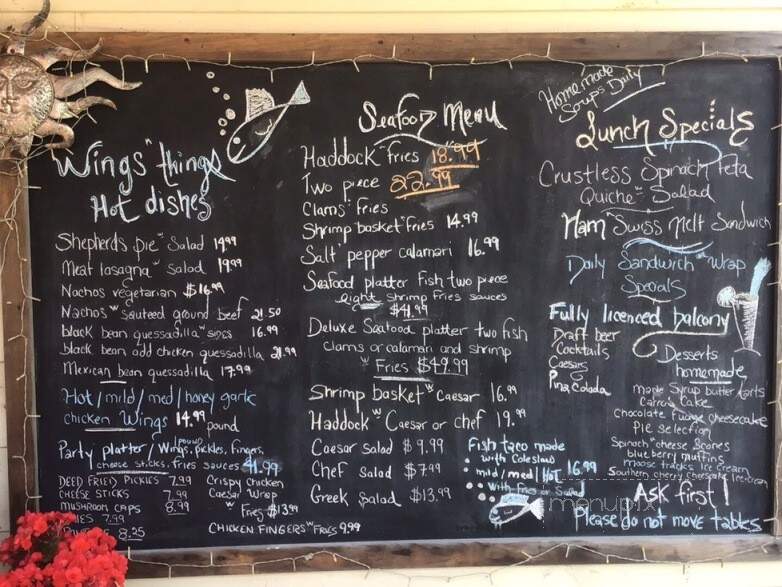 Wings " things
Hot dishes
Shepherds pie w Salad 14.99
Meat lasagna w Salad 19.99
Nachos vegetarian $16.99
Nachos w Sauteed ground beef 21.50
black bean quessadilla w sides 16.99
black bean add chicken quessadilla 21.99
Mexican bean quessadilla 17.99
Hot / mild / med / honey garlic
chicken Wings 14.99 pound
Party platter / Wings, 1 pound pickles, fingers,
cheese sticks, fries sauces 41.99
DEED FRIED PICKLES 7.99
CHEESE STICKS 7.99
MUSHROOM CAPS 8.99
7.99
8.25
Crispy chicken
Caesar Wrap
w Fries $13.99
CHICKEN FINGERS w FRIES 9.99
Seafood Menu
Haddock " Fries 18.99
Two piece 22.99
Clams " Fries
Shrimp basket " Fries 14.99
Salt pepper calamari 16.99
Seafood platter fish two piece
eight shrimp fries sauces
$41.99
Deluxe Seafood platter two fish
clams or calamari and shrimp
w Fries $49.99
Shrimp basket w Caesar 16.99
Haddock w Caesar or chef 19.99
Caesar salad $9.99
Chef Salad $7.99
Greek Salad $13.99
Fish taco made
with Coleslaw
mild/med/Hot 16.99
With Fries or Salad
Homemade
Soups Daily
Lunch Specials
Crustless Spinach Feta
Quiche w Salad
Ham " Swiss Melt Sandwich
Daily Sandwich " Wrap
Specials
Fully licenced balcony
Draft beer
Cocktails
Caesars
Pina Colada
Desserts
homemade
made Syrup butter tarts
Carrot Cake
Chocolate Fudge cheesecake
Pie Selection
Spinach " cheese Scones
blue berry muffins
moose tracks Ice cream
Southern cherry cheesecake Icecream
Ask first !
Please do not move tables
menupix